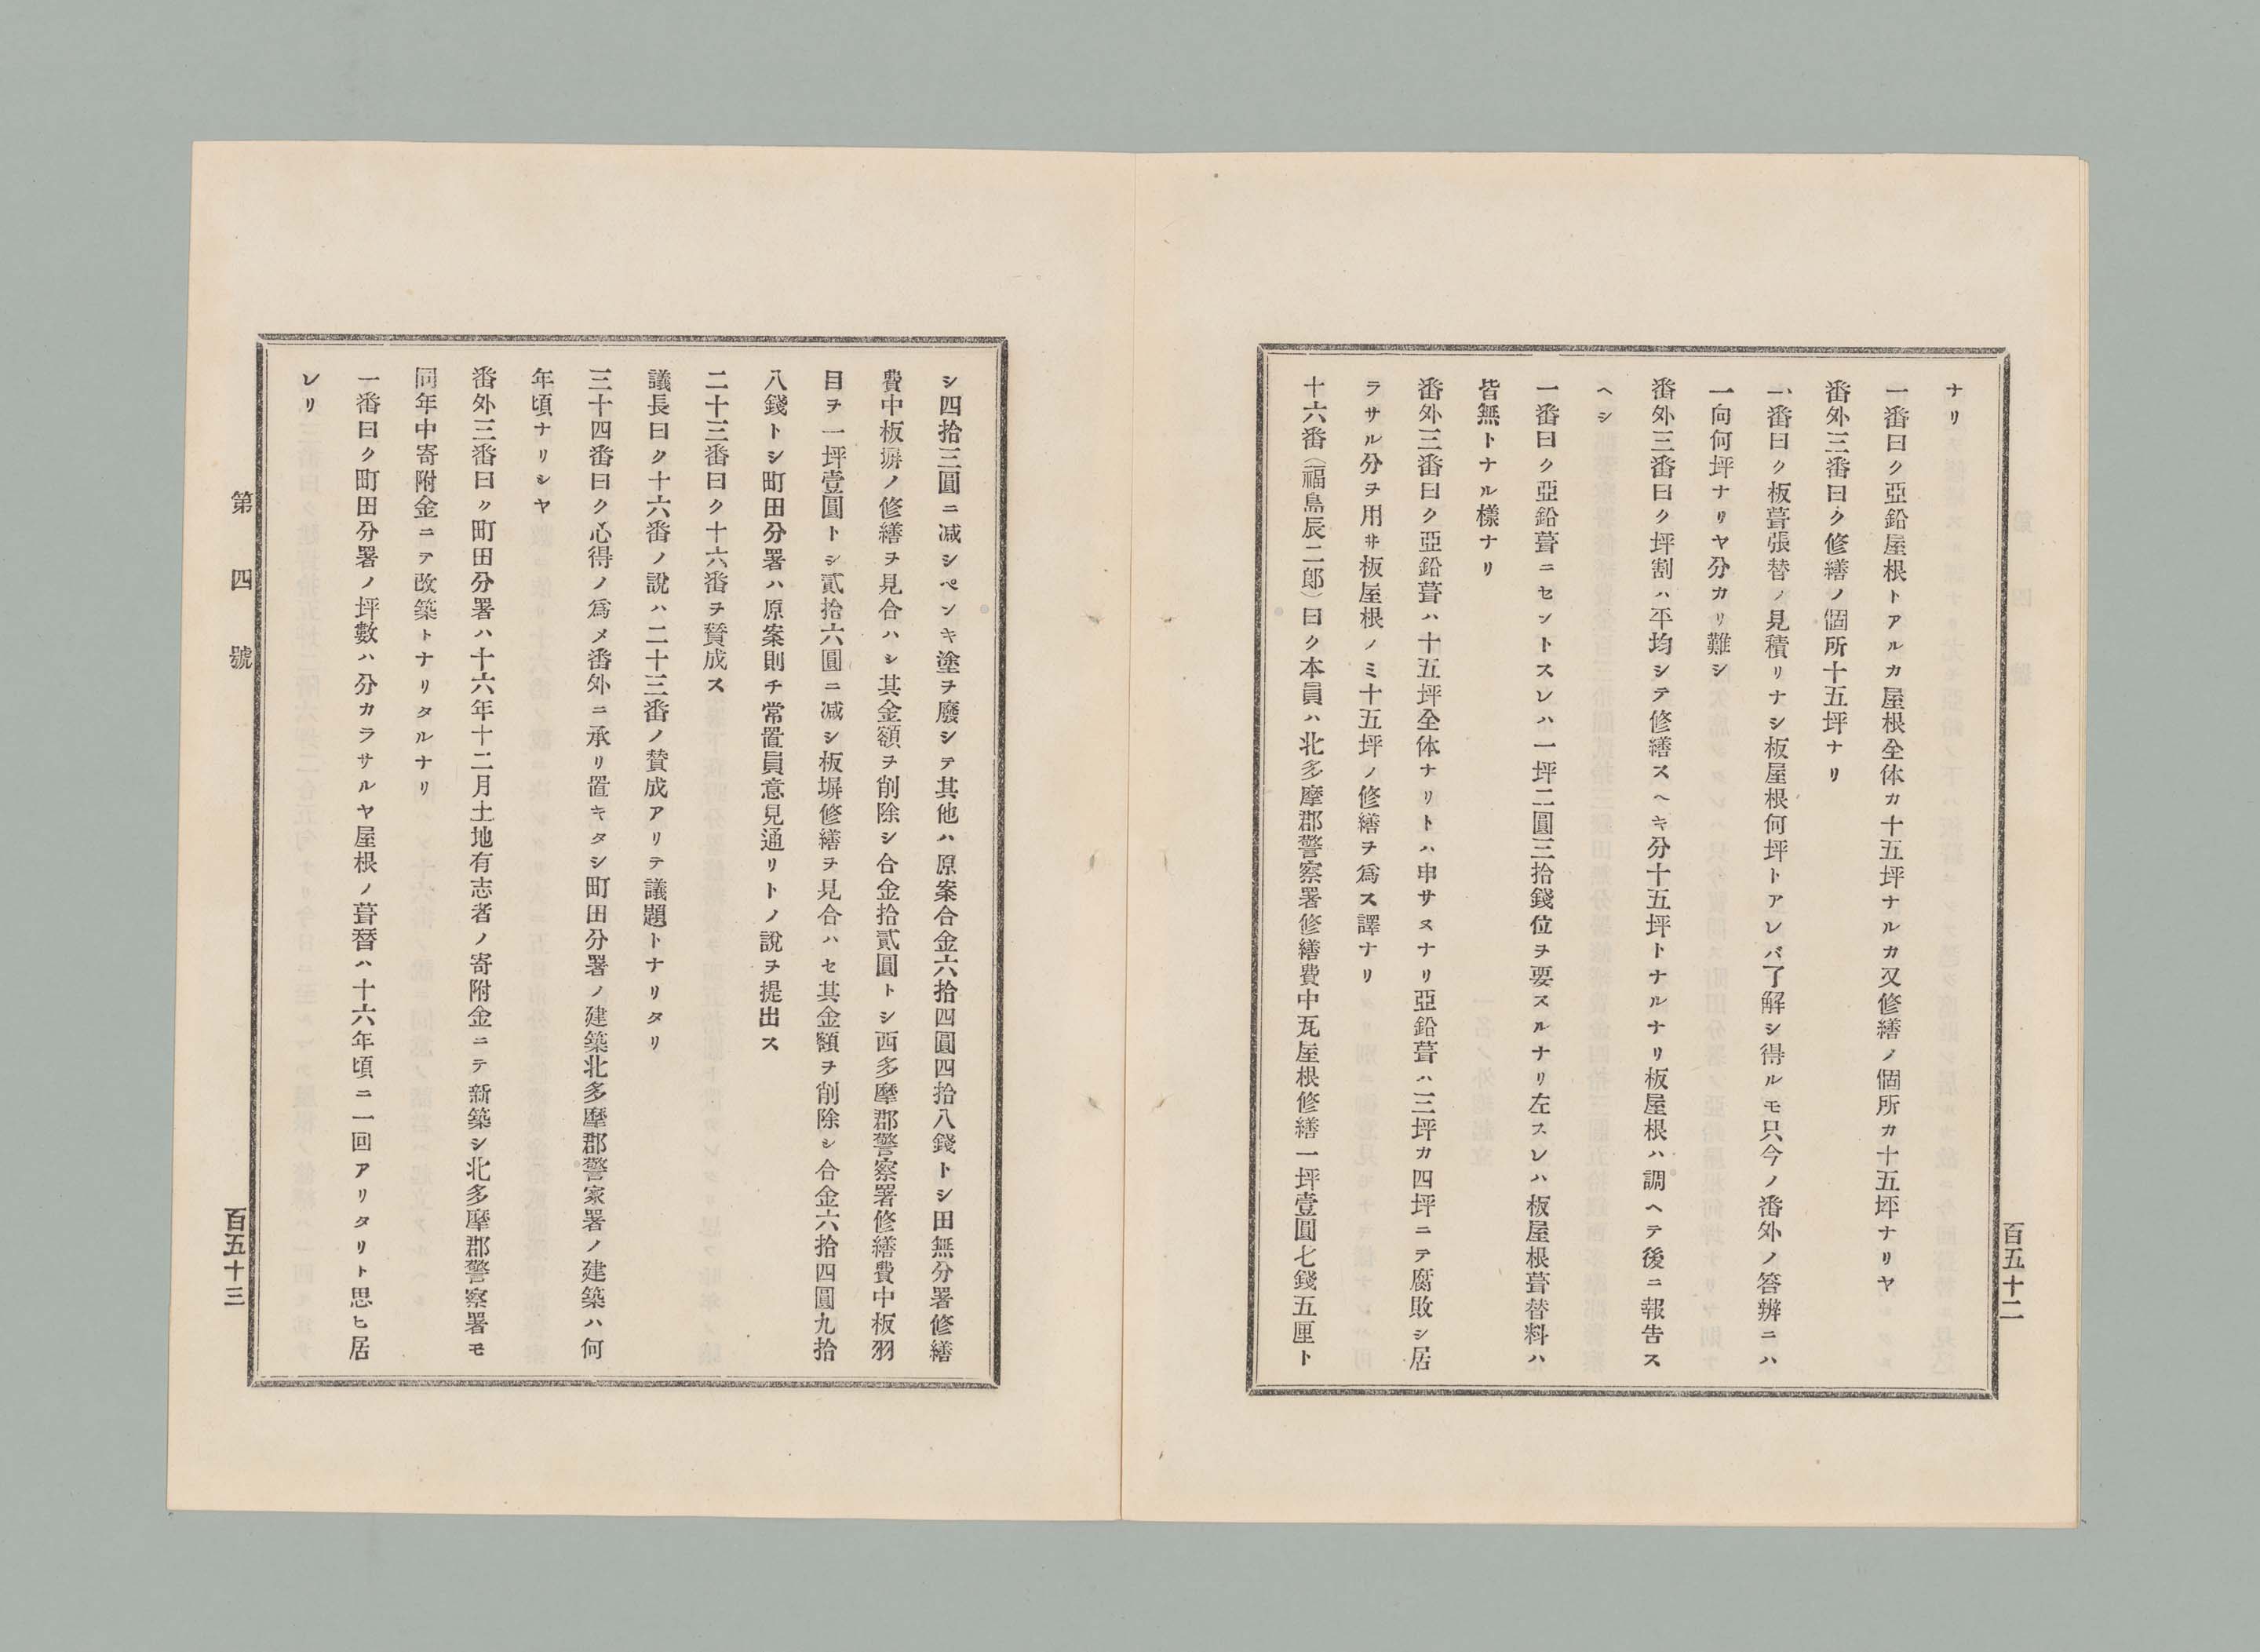 百五十二
ナリ
一番曰ク亞鉛屋根トアルカ屋根全体カ十五坪ナルカ又修繕ノ個所カ十五坪ナリヤ
番外三番曰ク修繕ノ個所十五坪ナリ
一番曰ク板葺張替ノ見積リナシ板屋根何坪トアレバ了解シ得ルモ只今ノ番外ノ答辨ニハ
一向何坪ナリヤ分カリ難シ
番外三番曰ク坪割ハ平均シテ修繕スヘキ分十五坪トナルナリ板屋根ハ調ヘテ後ニ報告ス
ヘシ
一番曰ク亞鉛葺ニセントスレハ一坪二圓三拾錢位ヲ要スルナリ左スレハ板屋根葺替料ハ
皆無トナル樣ナリ
番外三番曰ク亞鉛葺ハ十五坪全体ナリトハ申サヌナリ亞鉛葺ハ三坪カ四坪ニテ腐敗シ居
ラサル分ヲ用ヰ板屋根ノミ十五坪ノ修繕ヲ爲ス譯ナリ
十六番(福島辰二郎)曰ク本員ハ北多摩郡警察署修繕費中瓦屋根修繕一坪壹圓七錢五厘ト
シ四拾三圓ニ减シペンキ塗ヲ廢シテ其他ハ原案合金六拾四圓四拾八錢トシ田無分署修繕
費中板塀ノ修繕ヲ見合ハシ其金額ヲ削除シ合金拾貳圓トシ西多摩郡警察署修繕費中板羽
目ヲ一坪壹圓トシ貳拾六圓ニ减シ板塀修繕ヲ見合ハセ其金額ヲ削除シ合金六拾四圓九拾
八錢トシ町田分署ハ原案則チ常置員意見通リトノ說ヲ提出ス
二十三番曰ク十六番ヲ賛成ス
議長曰ク十六番ノ說ハ二十三番ノ賛成アリテ議題トナリタリ
三十四番曰ク心得ノ爲メ番外ニ承リ置キタシ町田分署ノ建築北多摩郡警家署ノ建築ハ何
年頃ナリシヤ
番外三番曰ク町田分署ハ十六年十二月土地有志者ノ寄附金ニテ新築シ北多摩郡警察署モ
同年中寄附金ニテ改築トナリタルナリ
一番曰ク町田分署ノ坪數ハ分カラサルヤ屋根ノ葺替ハ十六年頃ニ一回アリタリト思ヒ居
レリ
第四號
百五十三